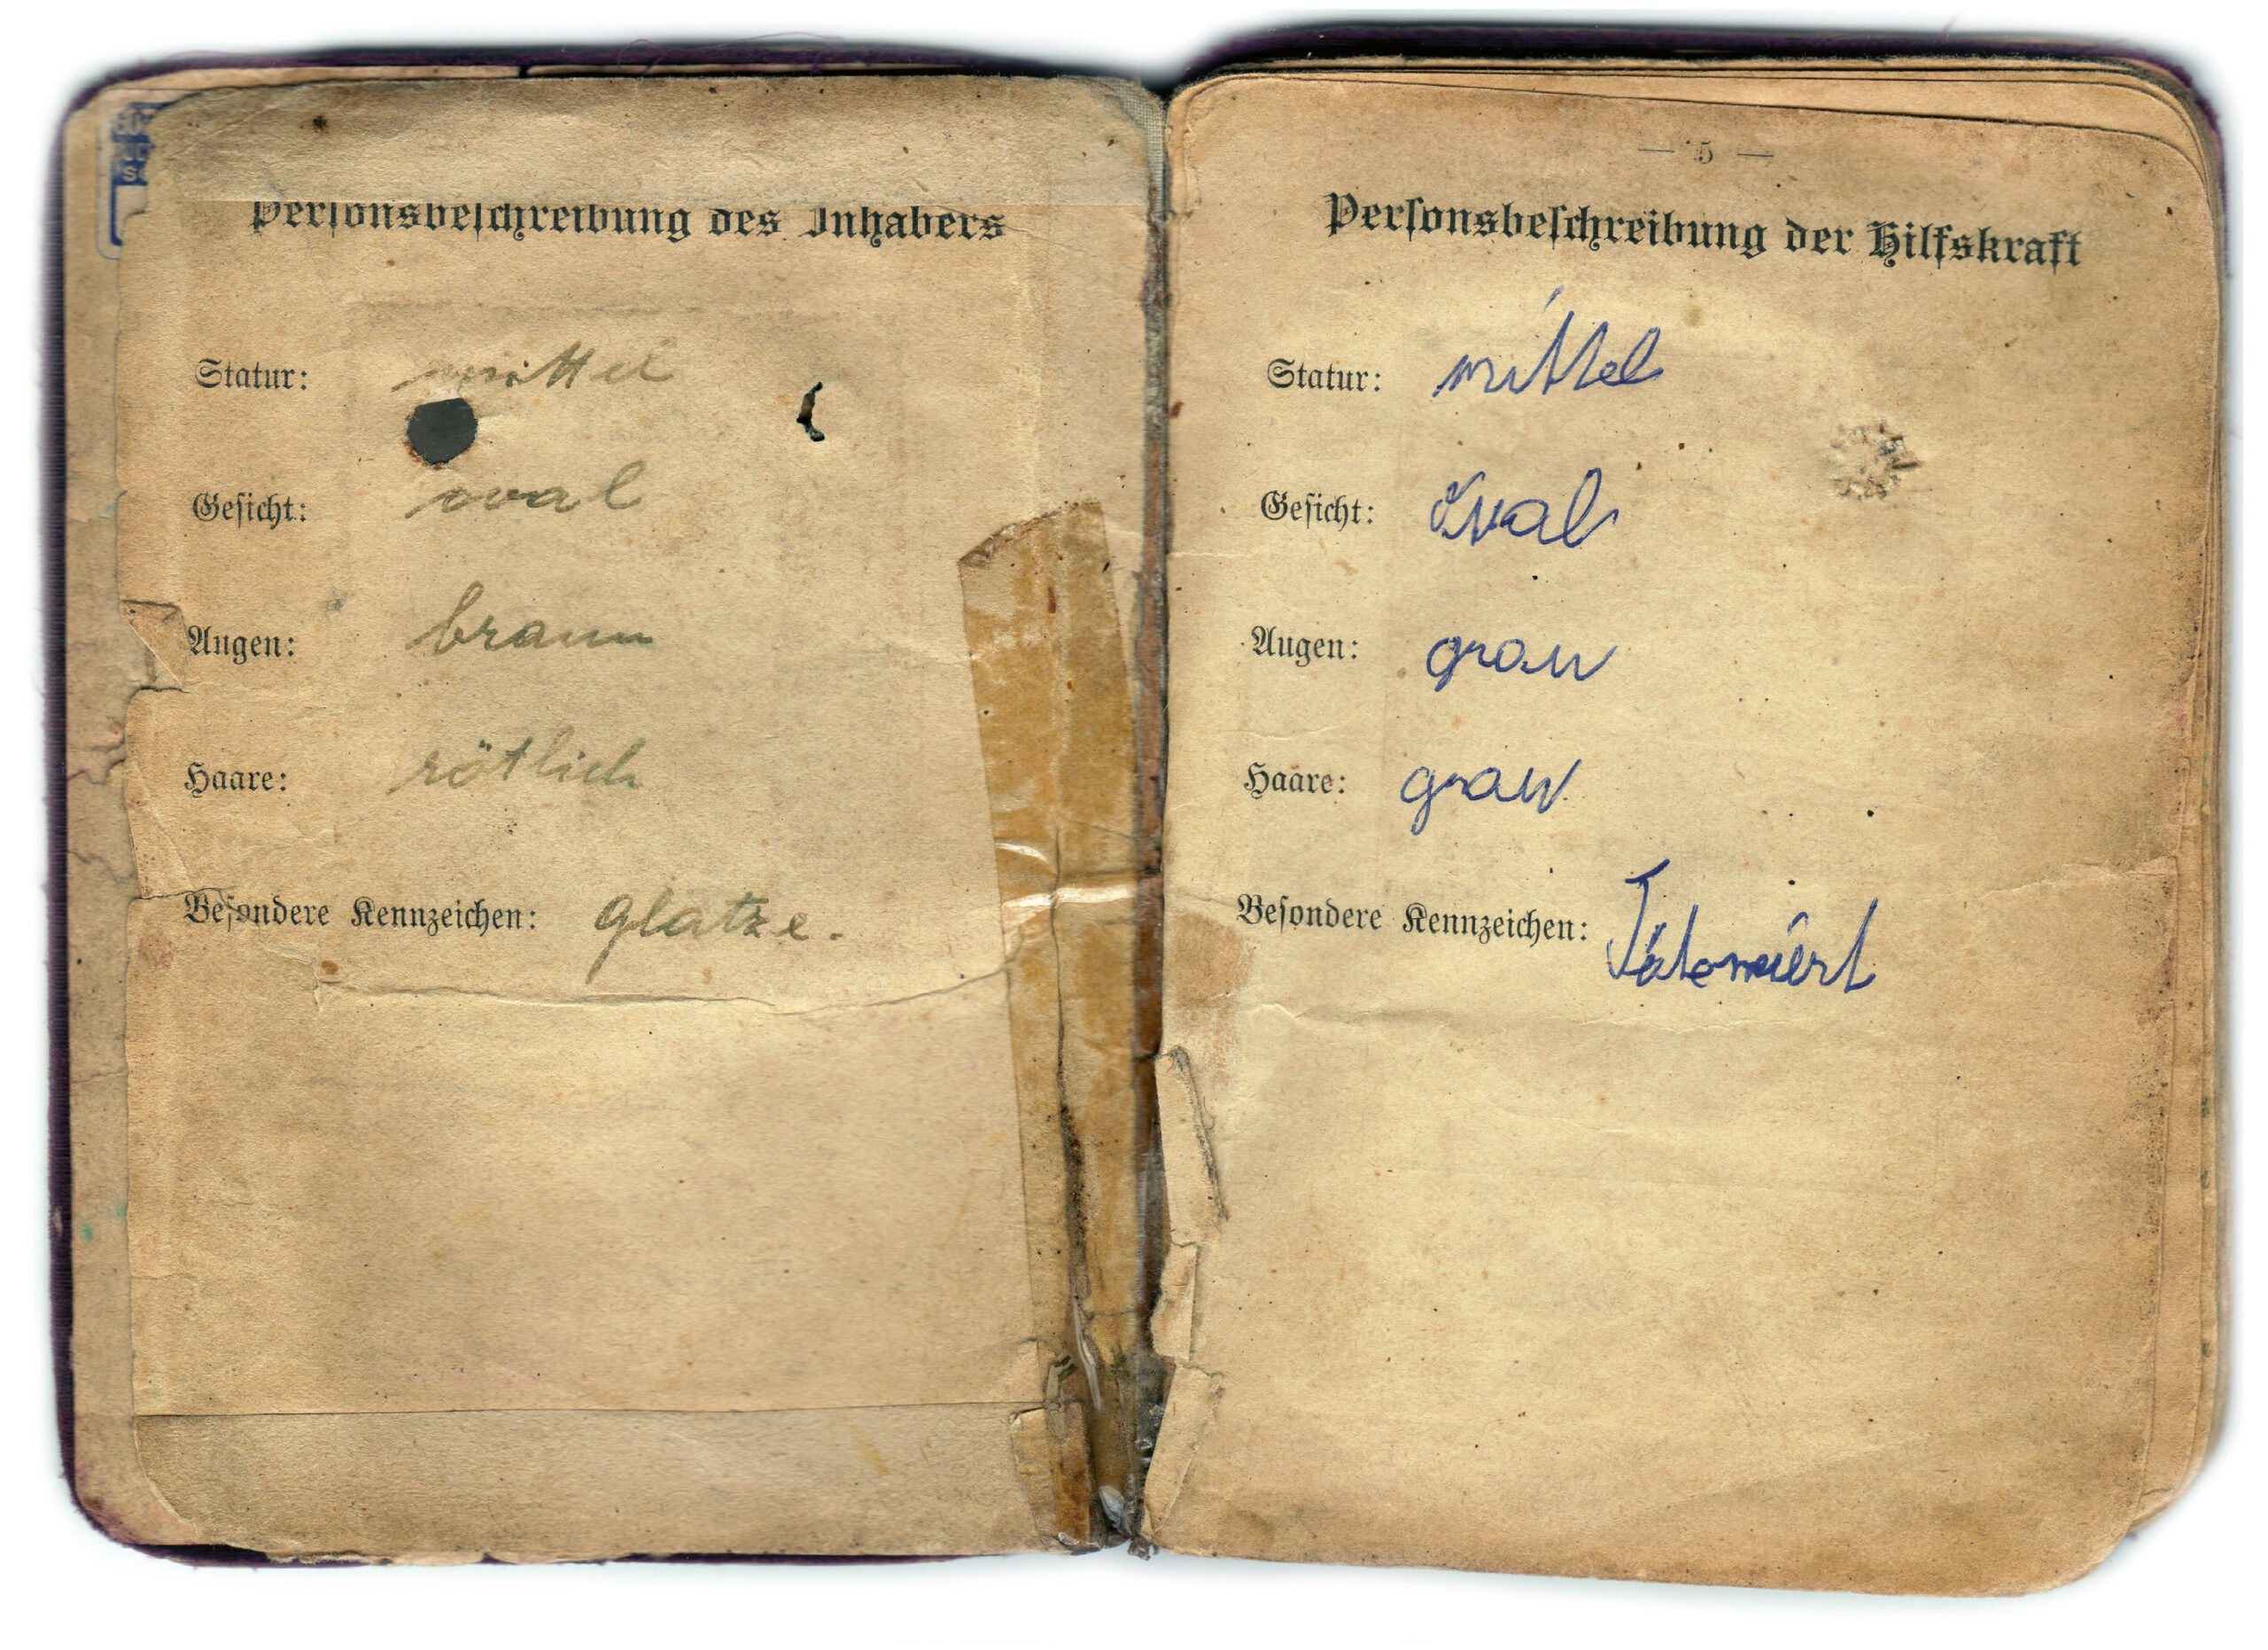 Personsbeschreibung des Inhabers
Statur: mittel
Gesicht: oval
Augen: braun
Haare: rötlich
Besondere Kennzeichen: glatze.
— 5 —
Personsbeschreibung der Hilfskraft
Statur: mittel
Gesicht: Oval
Augen: grau
Haare: grau
Besondere Kennzeichen: